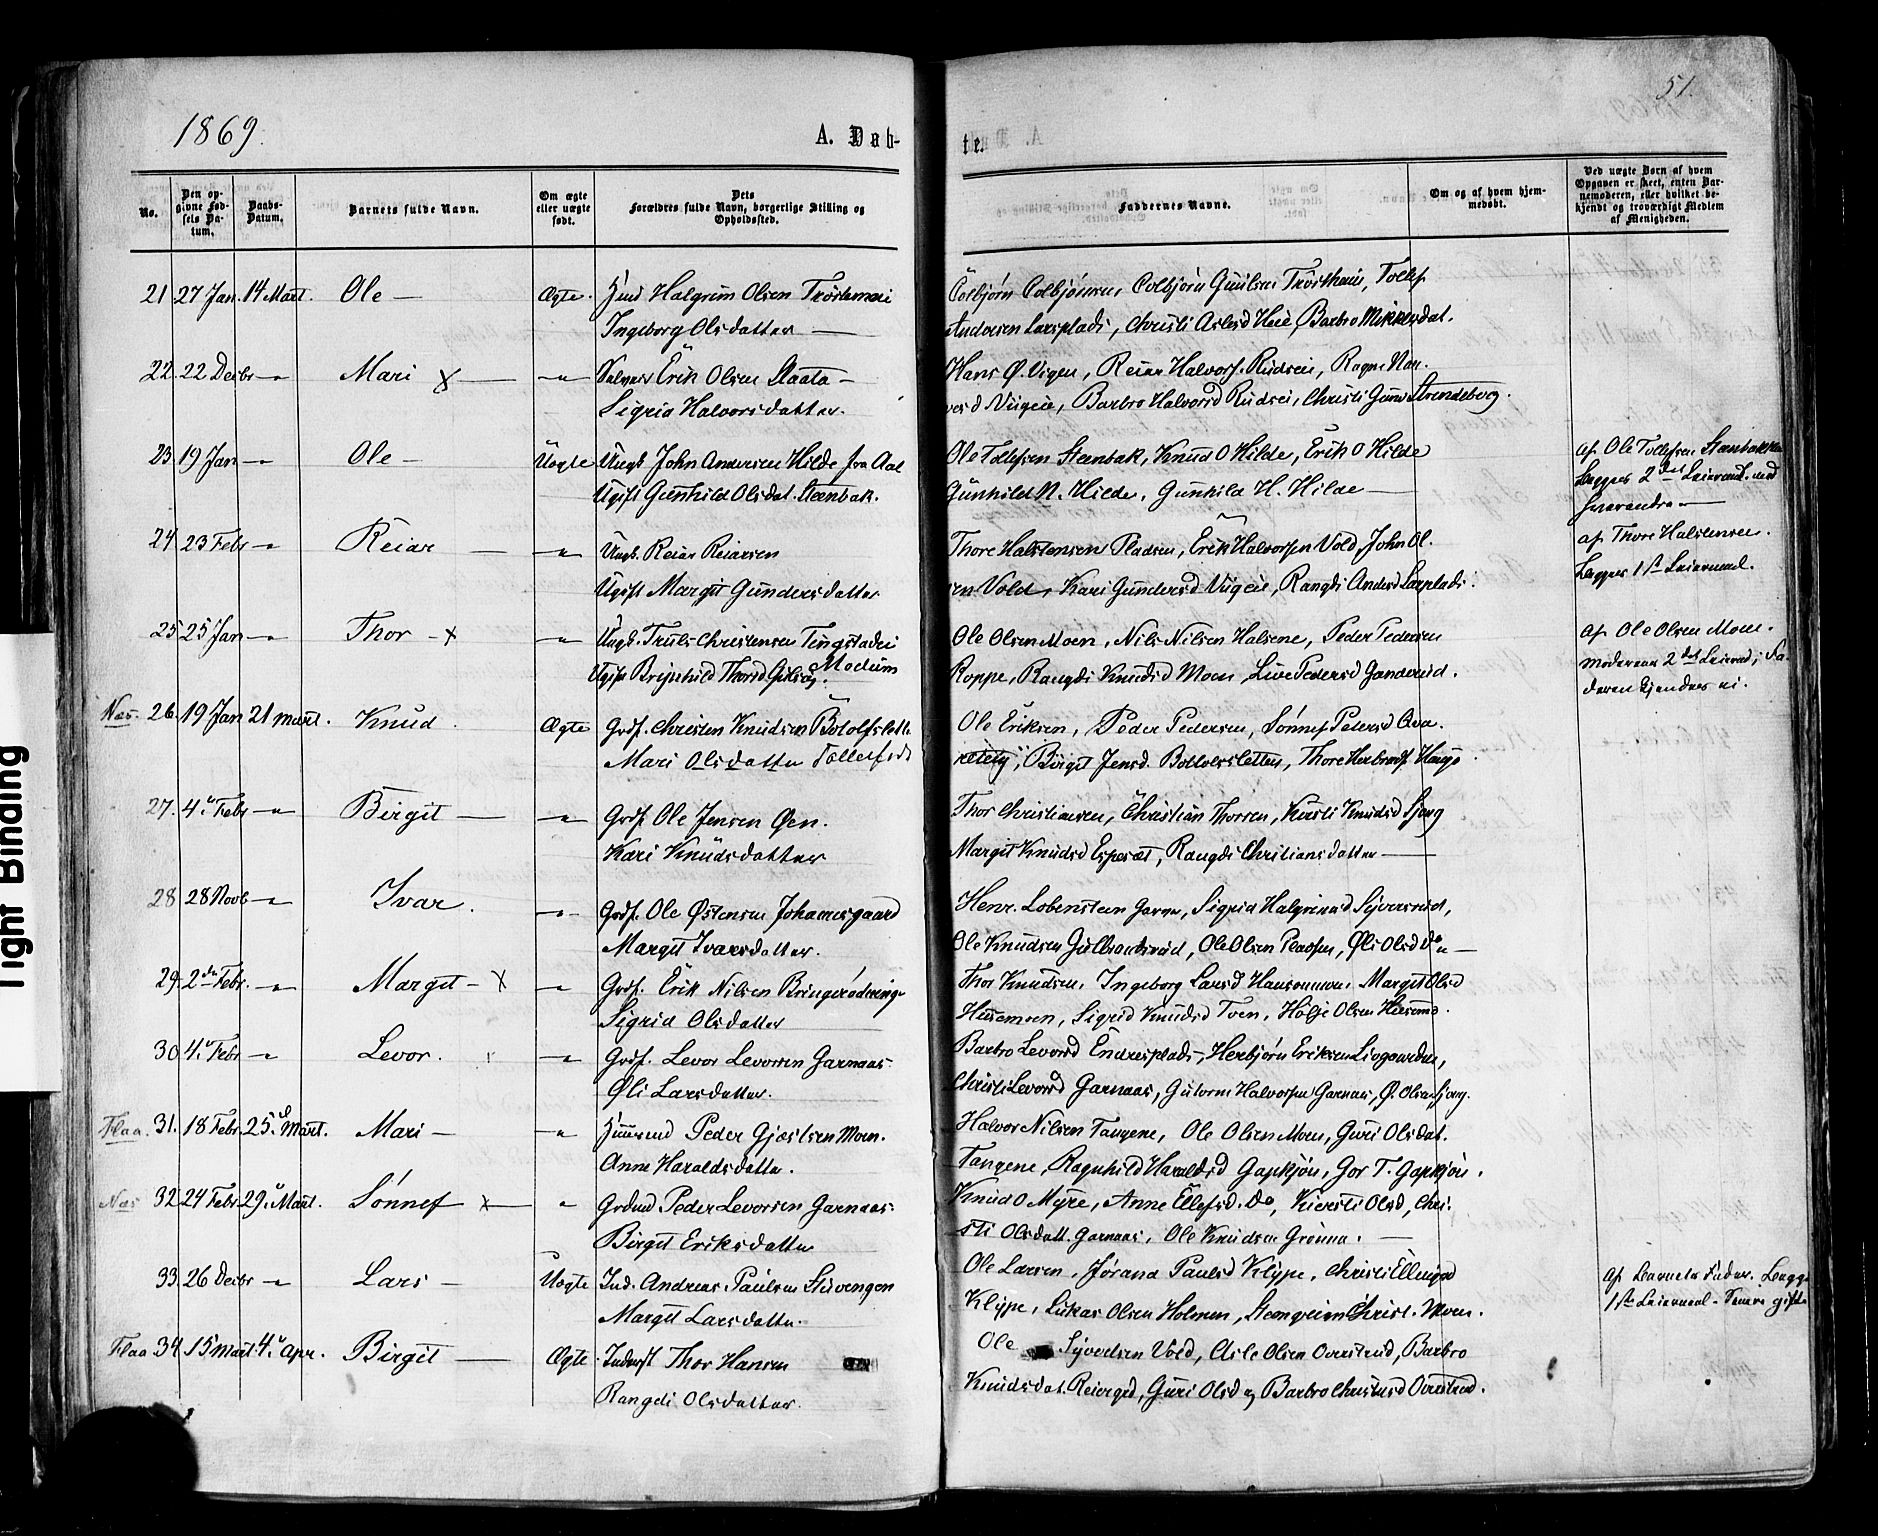 51.
1869.
A. Dåb-
te.
No.
Den op-
givne Fød-
sels Da-
tum.
Daabs-
Datum.
Barnets fulde Navn.
Om ægte
eller uægte
født.
Dets
Forældres fulde Navn, borgerlige Stilling og
Opholdssted.
Faddernes Navne.
Om og af hvem hjem-
medøbt.
Ved uægte Børn af hvem
Opgaven er skeet, enten Bar-
nemoderen, eller hvilket be-
kjendt og troværdigt Medlem
af Menigheden.
21 27 Jan. 14 Mart. Ole — Ægte. Halgrim Olsen
Ingeborg Olsdatter —
Colbjørn Colbjørnsen, Colbjørn Trøstheim, Tollef
Andersen Larsplads, Christi Aslesd Heie Barbro Mikkelsdat.
22. 22 Decbr " Mari x — " Erik Olsen Staata —
Sigrid Halvorsdatter.
Hans Ø. Vigen, Reiar Halvors. Rudsei, Ragne Hal-
vorsd Barbro Halvorsd Rudsei, Christi Strandeborg.
23 19 Jan " Ole — Uægte Ungk John Andersen Hilde fra Aal
Ugift Gunhild Olsdat. Steenbak.
Ole Tollefsen Steenbak, Knud O Hilde, Erik O Hilde
Gunhild N. Hilde, Gunhild H. Hilde —
af Ole Tollefsen Steenbakken
Begges 2det Leiermaal. med
hverandre —
24 23 Febr " Reiar — " Ungk. Reiar Reiarsen
Ugift Margit Gundersdatter
Thore Halstensen Pladsen, Erik Halvorsen Vold, John Ol-
sen Vold, Kari Gundersd Rangdi Andersd Larsplads.
af Thore Halstensen.
Begges 1st Leiermaal.
25 25 Jan " Thor — x " Ungk. Truls Christensen Tingstadei
Modum
Ugift Brynhild Thorsd
Ole Olsen Moen, Nils Nilsen Halsene, Peder Pedersen
Roppe, Rangdi Knudsd Moen, Live Pedersd Gandrud.
af Ole Olsen Moen.
Moderens 2det Leierm; Fa-
deren kjendes ei.
Næs. 26. 19 Jan 21 Mart. Knud. Ægte Grdf. Christen Knudsen Botolfslette
Mari Olsdatter
Ole Eriksen, Peder Pedersen, Sønnef Pedersd
Birgit Jensd. Bottolvsletten, Thore Herbrandsd.
27. 4. Febr " Birgit — " Grdf. Ole Jensen Øen.
Kari Knudsdatter
Thor Christiansen, Christian Thorsen, Kirsti Knudsd
Margit Knudsd Espeset, Rangdi Christiansdatter —
28 28 Novb " Ivar. " Grdf. Ole Østensen Johannesgaard
Margit Ivarsdatter.
Henr. Lobenstein Garver, Sigrid Halgrimsd Syversrud,
Ole Knudsen Gulbrandsrud, Ole Olsen Pladsen, Øli Olsd Do —
29. 2den Febr. " Margit — x " Grdf. Erik Nilsen Bringerødningen
Sigrid Olsdatter
Thor Knudsen, Ingeborg Larsd Hansemoen, Margit Olsd
Husemoen, Sigrid Knudsd Toen, Holje Olsen Husemo.
30 4. Febr " Levor. " Grdf. Levor Levorsen Garnaas
Øli Larsdatter.
Barbro Levorsd Endresplads, Herbjørn Eriksen Livgaarden,
Christi Levorsd Garnaas, Gutorm Halvorsen Garnaas, Ø. Olsen
Flaa. 31. 18 Febr. 25. Mart. Mari — " Peder Gjestsen Moen.
Anne Haraldsdatter.
Halvor Nilsen Tangene, Ole Olsen Moen, Guri Olsdat.
Tangene, Ragnhild Haraldsd Gapkjøn, Gor T. Gapkjøn.
Næs 32 24 Febr 29. Mart. Sønnef x — " Peder Levorsen Garnaas.
Birgit Eriksdatter
Knud O Myre, Anne Ellefsd. Do, Kiersti Olsd, Chri-
sti Olsdatt. Garnaas, Ole Knudsen Grønna. —
33. 26 Decbr " Lars — Uægte Ind. Andreas Paulsen Stuvengen
Margit Larsdatter.
Ole Larsen, Jørand Paulsd Klype, Christi Ellingsd
Klype, Lukas Olsen Holmen, Steengrim Christ. Moen.
af Barnets Fader. Begges
1ste Leiermaal. Senere gifte
Flaa 34 15 Mart 4. Apr. Birgit — Ægte. Inderst Thor Hansen
Rangdi Olsdatter.
Ole Syvertsen Vold, Asle Olsen Overstrud, Barbro
Knudsdat. Guri Olsd og Barbro Christensd Overstrud.
Tight Binding